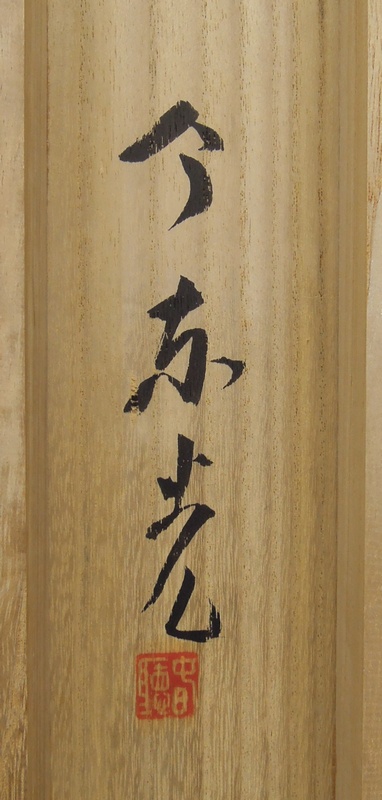 今東光